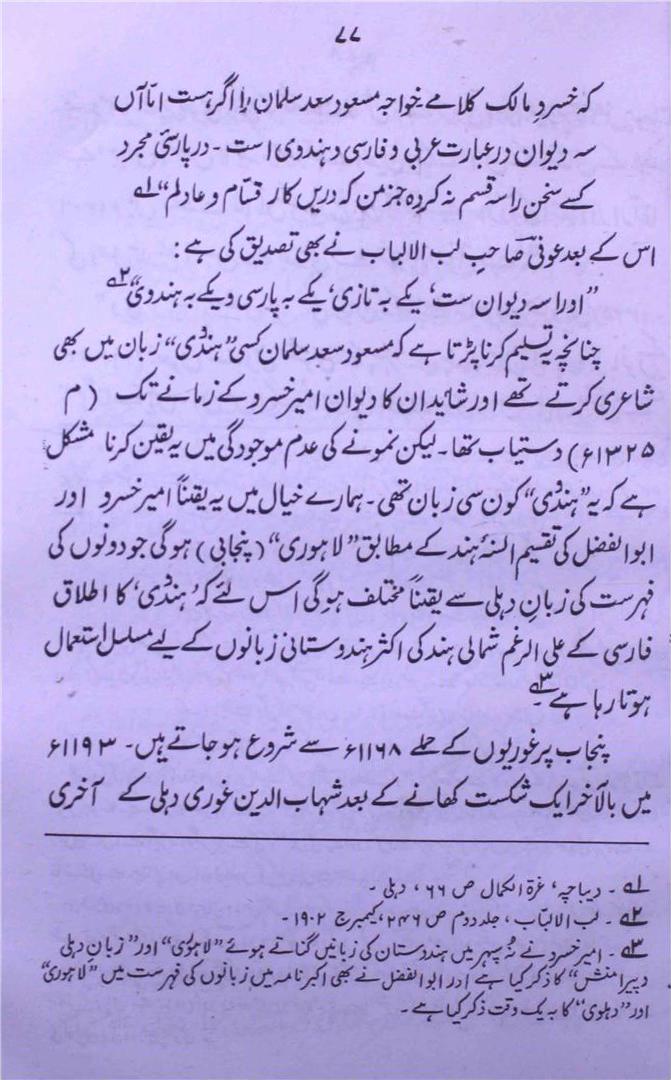 ۷۷
کہ خسرو مالک کلامے خواجہ مسعود سعد سلمان را اگر ہست اما آں
سہ دیوان در عبارت عربی و فارسی و ہندوی است ۔ در پارسی مجرد
کسے سخن را سہ قسم نہ کردہ جز من کہ دریں کار قسّام و عادلم“ لہ۱
اس کے بعد عوفی صاحبِ لب الالباب نے بھی تصدیق کی ہے :
”او را سہ دیوان ست، یکے بہ تازی، یکے بہ پارسی و یکے بہ ہندوی“ لہ۲
چنانچہ یہ تسلیم کرنا پڑتا ہے کہ مسعود سعد سلمان کسی ”ہندُوی“ زبان میں بھی
شاعری کرتے تھے اور شاید ان کا دیوان امیر خسرو کے زمانے تک (م
۱۳۲۵ء) دستیاب تھا۔ لیکن نمونے کی عدم موجودگی میں یہ یقین کرنا مشکل
ہے کہ یہ ”ہندُوی“ کون سی زبان تھی۔ ہمارے خیال میں یہ یقیناً امیر خسرو اور
ابوالفضل کی تقسیم السنۂ ہند کے مطابق ”لاہوری“ (پنجابی) ہوگی جو دونوں کی
فہرست کی زبانِ دہلی سے یقیناً مختلف ہوگی اس لئے کہ ’ہندُوی‘ کا اطلاق
فارسی کے علی الرغم شمالی ہند کی اکثر ہندوستانی زبانوں کے لیے مسلسل استعمال
ہوتا رہا ہے لہ۳۔
پنجاب پر غوریوں کے حملے ۱۱۶۸ء سے شروع ہو جاتے ہیں۔ ۱۱۹۳ء
میں بالآخر ایک شکست کھانے کے بعد شہاب الدین غوری دہلی کے آخری
لہ۱ ۔ دیباچہ، غرۃ الکمال ص ۶۶، دہلی ۔
لہ۲ ۔ لب الالبّاب، جلد دوم ص ۲۴۶، کیمبرج ۱۹۰۲۔
لہ۳ ۔ امیر خسرو نے نُہ سپہر میں ہندوستان کی زبانیں گناتے ہوئے ”لاہوری“ اور ”زبانِ دہلی
و پیرامنش“ کا ذکر کیا ہے اور ابوالفضل نے بھی اکبر نامہ میں زبانوں کی فہرست میں ”لاہوری“
اور ”دہلوی“ کا بہ یک وقت ذکر کیا ہے۔